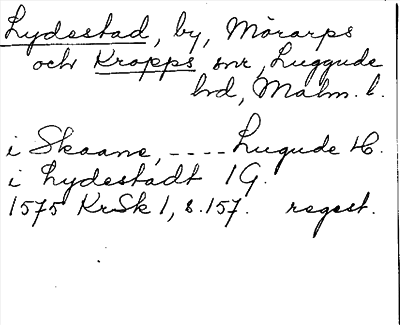 Lydestad, by, Mörarps
och Kropps snr, Luggude
hd, Malm. l.
i Skaane, ---- Lugude H.
i Lydestadt 1 G.
1575 KrSk 1, s. 157. regest.